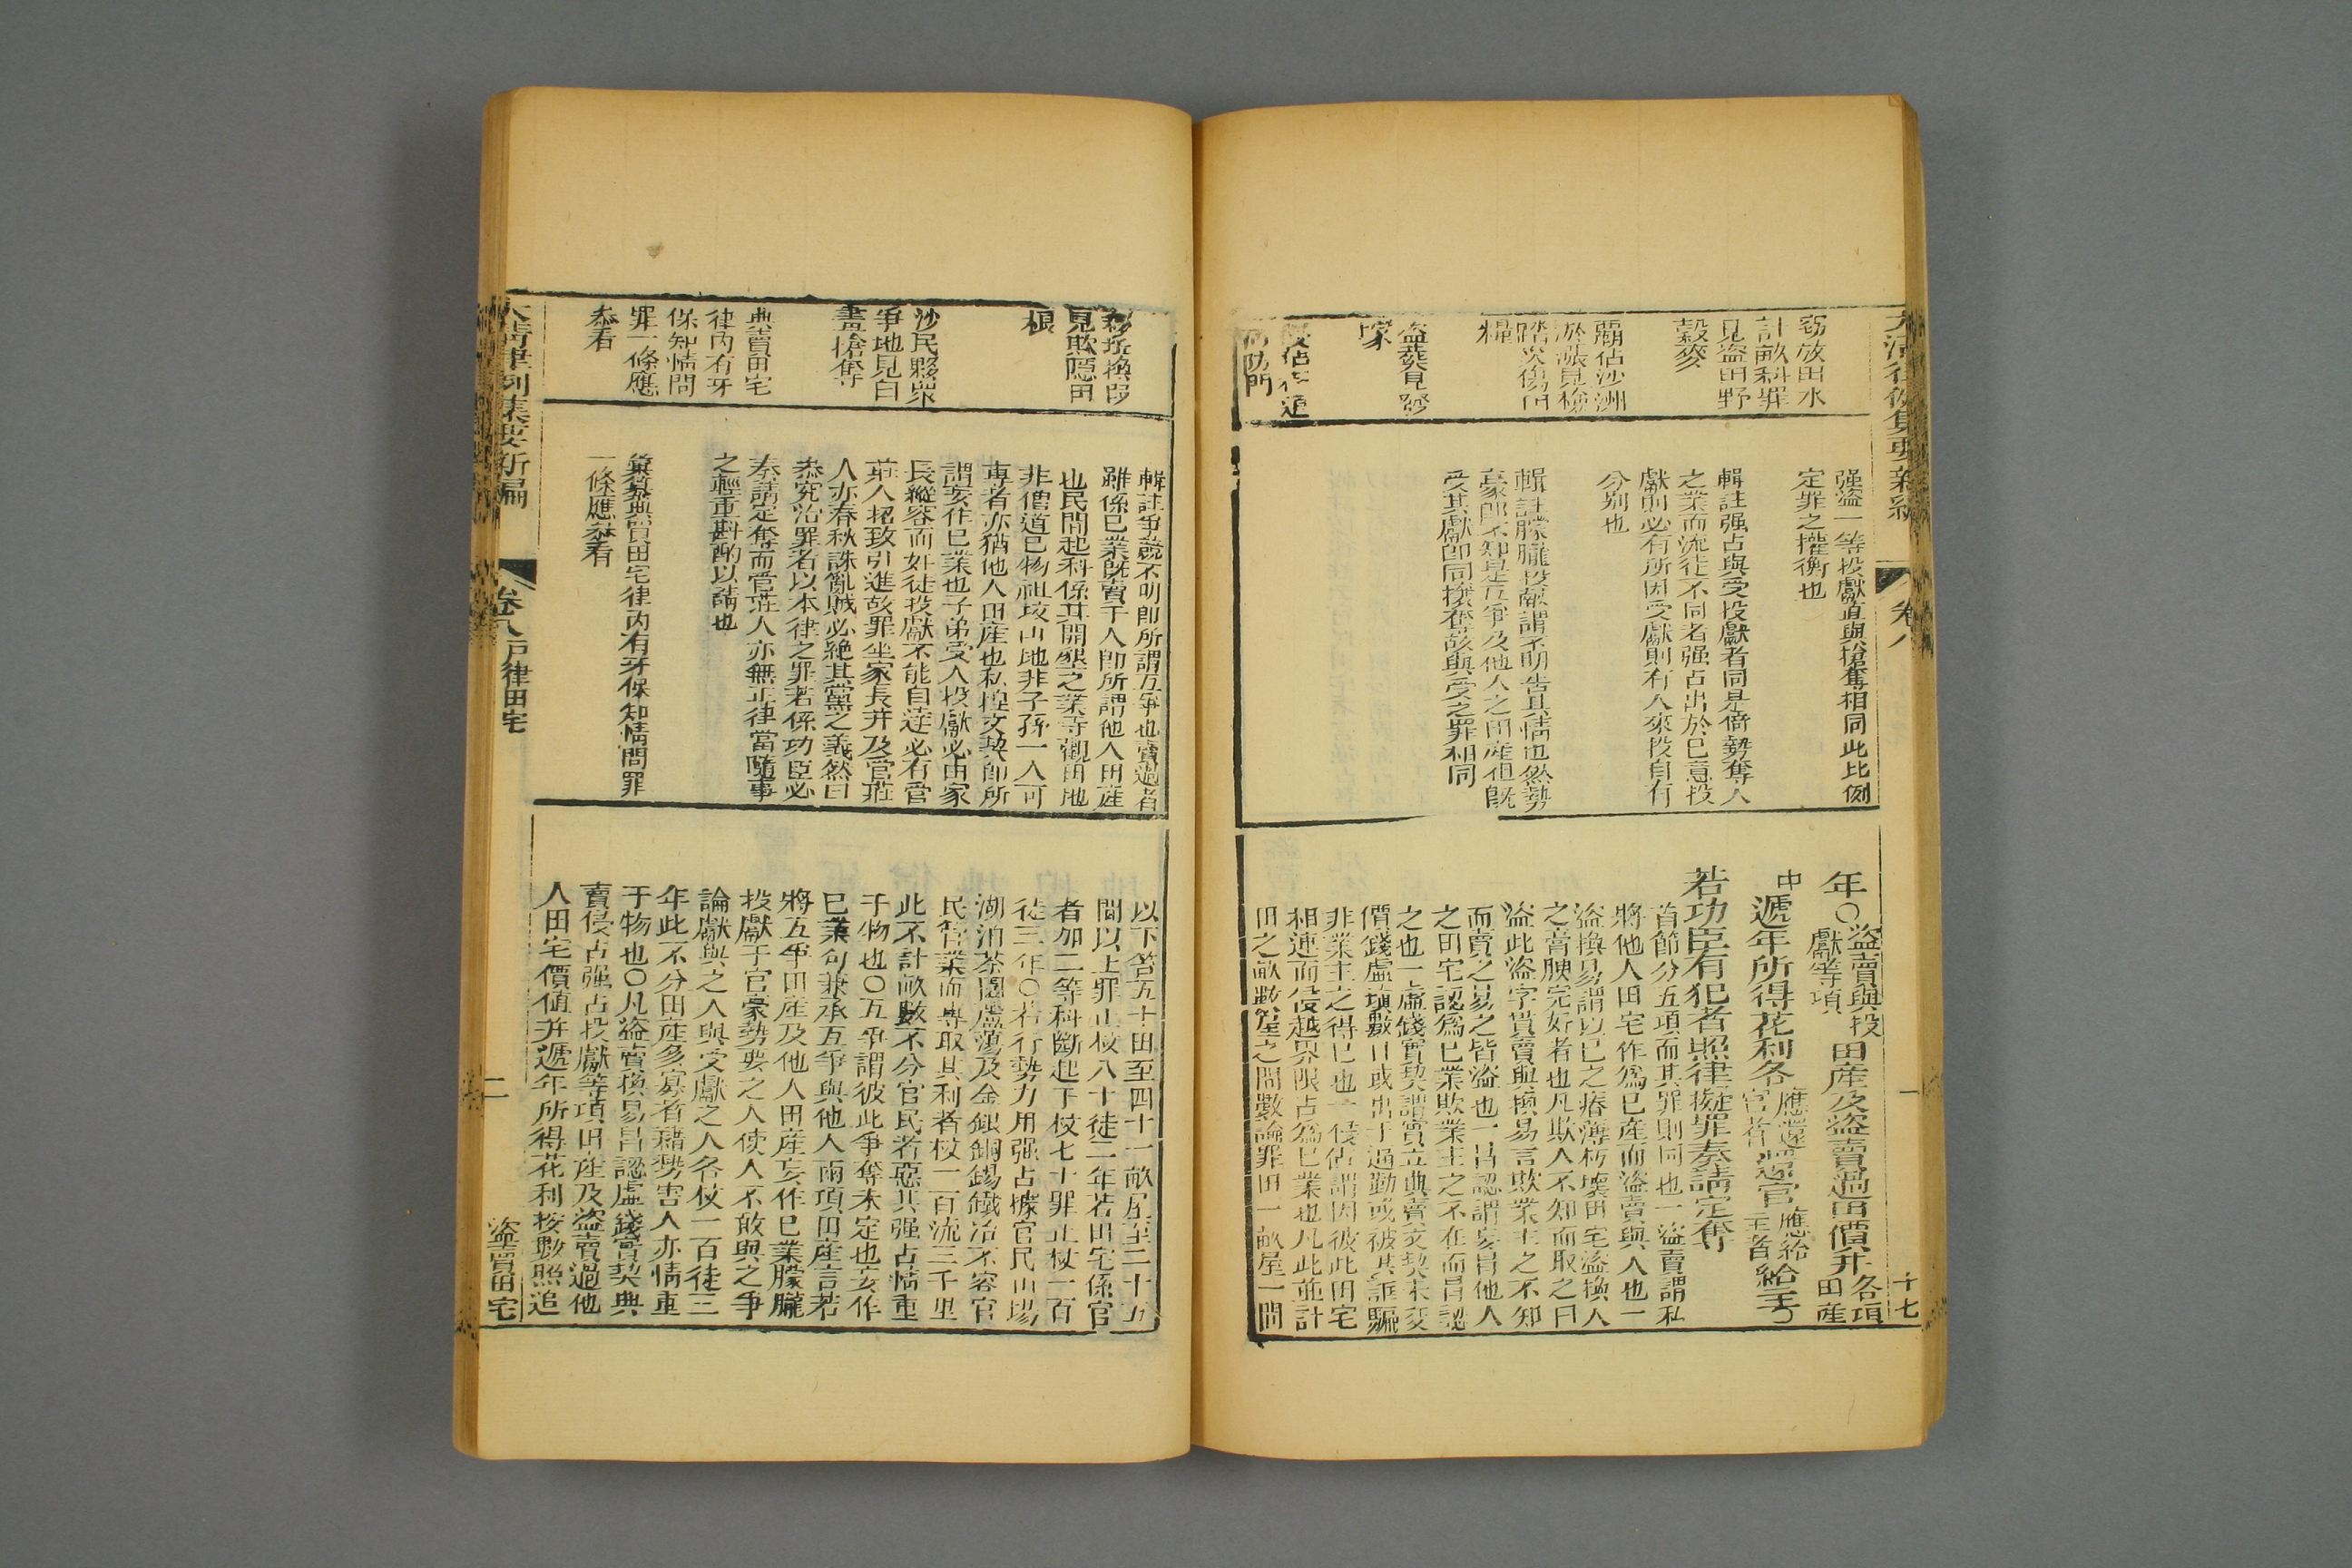 大清律例集要新編
卷八
十七
竊放田水
計畝科罪
見盜田野
穀麥
霸佔沙洲
糧
盜葬見發
塚
强盜一等投獻直與搶奪相同此比例
定罪之權衡也
輯註强占與受投獻者同是倚勢奪人
之業而流徒不同者强占出於己意投
獻則必有所因受獻則有人來投自有
分別也
輯註朦朧投獻謂不明告其情也然勢
豪即不知是互爭及他人之田產但旣
受其獻即同攘奪故與受之罪相同
年○盜賣與投獻等項田產及盜賣過田價幷各項田產
中遞年所得花利各應還官者還官應給主者給主
若功臣有犯者照律擬罪奏請定奪
首節分五項而其罪則同也一盜賣謂私
將他人田宅作爲已產而盜賣與人也一
盜換易謂以已之瘠薄朽壞田宅盜換人
之膏腴完好者也凡欺人不知而取之曰
盜此盜字貫賣與換易言欺業主之不知
而賣之易之皆盜也一冒認謂妄冒他人
之田宅認爲已業欺業主之不在而冒認
之也一虛錢實契謂實立典賣文契未交
價錢虛塡數目或出于逼勒或被其誆騙
非業主之得已也一侵佔謂因彼此田宅
相連而侵越界限占爲已業也凡此並計
田之畝數屋之間數論罪田一畝屋一間
移坵換段
見欺隱田
根
沙民夥衆
爭地見白
晝搶奪
典賣田宅
律內有牙
保知情問
罪一條應
叅看
輯註爭競不明即所謂互爭也賣過者
雖係已業旣賣于人即所謂他人田產
也民間起科係其開墾之業寺觀田地
非僧道已物祖墳山地非子孫一人可
專者亦猶他人田產也私捏文契即所
謂妄作已業也子弟受人投獻必由家
長縱容而奸徒投獻不能自達必有管
莊人招致引進故罪坐家長幷及管莊
人亦春秋誅亂賊必絕其黨之義然曰
叅究治罪者以本律之罪若係功臣必
奏請定奪而管莊人亦無正律當隨事
之輕重斟酌以請也
彙纂典買田宅律內有牙保知情問罪
一條應叅看
以下笞五十田至四十一畝屋至二十五
間以上罪止杖八十徒二年若田宅係官
者加二等科斷起于杖七十罪止杖一百
徒三年○若行勢力用强占據官民山場
湖泊茶園蘆蕩及金銀銅錫鐵冶不容官
民管業而專取其利者杖一百流三千里
此不計畝數不分官民者惡其强占情重
于物也○互爭謂彼此爭奪未定也妄作
已業句兼承互爭與他人兩項田產言若
將互爭田產及他人田產妄作已業朦朧
投獻于官豪勢要之人使人不敢與之爭
論獻與之人與受獻之人各杖一百徒三
年此不分田產多寡者藉勢害人亦情重
于物也○凡盜賣換易冒認虛錢實契典
賣侵占强占投獻等項田產及盜賣過他
人田宅價值幷遞年所得花利按數照追
大清律例集要新編
卷八戶律田宅
二
盜賣田宅